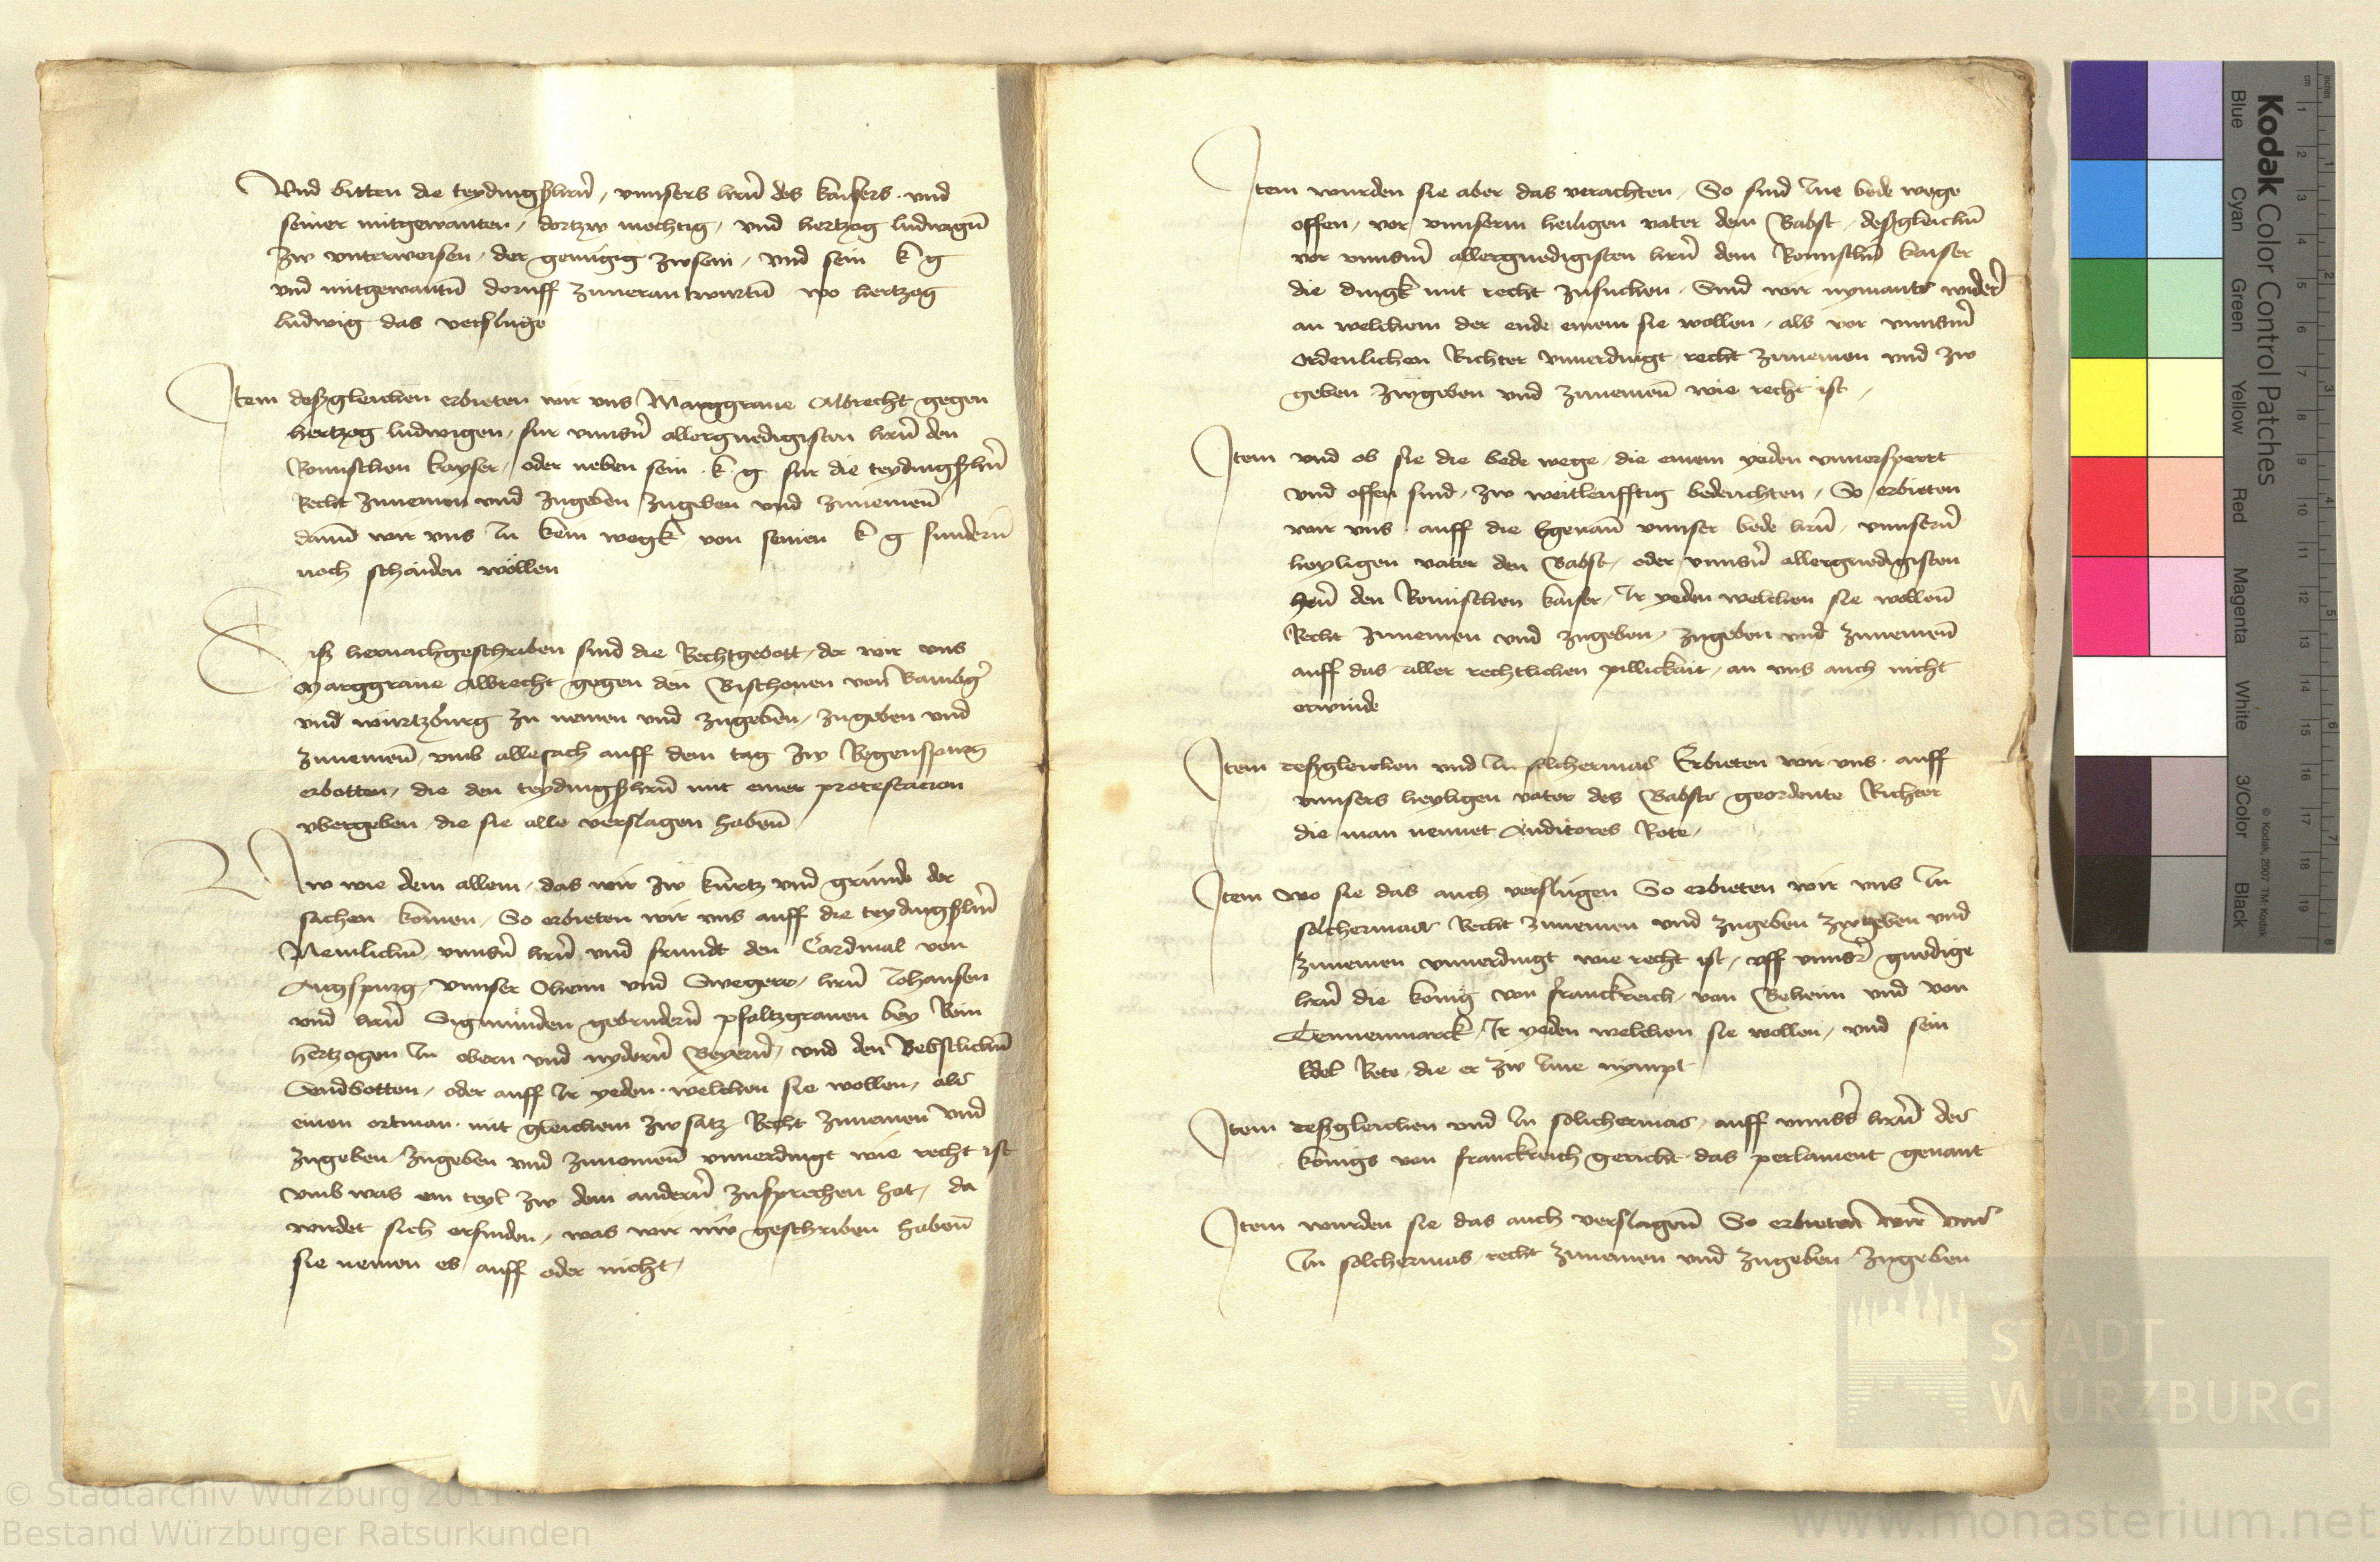 Vnd bitten die teydingßhrn̄, vnnsers hrn̄ des kaisers. vnd
seiner mitgewanten, dortzw mechtig, vnd hertzog ludwigen̄
zw vnterweisen, der genügig zwsein, vnd sein k g
vnd mitgewantn̄ doruff zuuerantwurtn̄ wo hertzog
ludwig das verslüge
Item deßgleichen erbieten wir vns Marggraue Albrecht gegen
hertzog ludwigen, fur vnnsn̄ allergnedigisten hrn̄ den
Romischen kayser, oder neben sein. k. g fur die teydingßhrn̄
Recht zunemen vnd zugeben zugeben vnd zunemen̄
dann̄ wir vns In kein wegk von seinen k g sundern̄
noch schaiden wöllen
Diß hernachgeschriben sind die Rechtgebott, der wir vns
Marggraue Albrecht gegen den Bischouen von Bambḡ
vnd würtzburg zu nemen vnd zugeben, zugeben vnd
zunemen̄, vmb alle sach auff dem tag zw Regenspurg
erbotten, die den teydingßhrn̄ mit einer protestacion
vbergeben, die sie alle verslagen haben̄
Nw wie dem allem, das wir zw kurtz vnd grunde der
sachen komen, So erbieten wir vns auff die teydingßhrn̄
Nemlichn̄ vnnsn̄ hrn̄ vnd frundt den Cardinal von
Augspurg, vnnser Oheim vnd Swegere, hrn̄ Johansen
vnd hrn̄ Sigmunden gebrudern̄ pfaltzgrauen bey Rein
hertzogen In obern vnd nydern̄ Beyern̄, vnd den Bebstlichn̄
Sendbotten, oder auff Ir yeden. welchen sie wollen, als
einen ortman. mit gleichem zwsatz Recht zunemen vnd
zugeben zugeben vnd zunemen̄ vnuerdingt wie recht ist
vmb was ein teyl zw dem andern̄ zusprechen hat, da
wirdet sich erfinden, was wir nw geschriben haben̄
sie nemen es auff oder nicht,
Item wurden sie aber das verachten, So sind Ine bede wege
offen, vor vnnserm heiligen vater dem Babst, deßgleichn̄
vor vnnsm̄ allergnedigisten hrn̄ dem Romischn̄ kaiser
die dingk mit recht zusuchen. Sind wir nymants wider̄
an welchem der ende einem sie wollen, als vor vnnsm̄
ordenlichen Richter vnuerdingt recht zunemen vnd zw
geben zwgeben vnd zunemen̄ wie recht ist,
Item vnd ob sie die bede wege, die einem yeden vnuersperrt
vnd offen sind, zw weitleufftig bedeuchten, So erbieten
wir vns. auff die bgenan̄ vnnser bede hrn̄, vnnsern̄
heyligen vater den Babst, oder vnnsn̄ allergnedigisten
hrn̄ den Romischen kaiser, Ir yeden welchen sie wollen̄
Recht zunemen vnd zugeben, zugeben vnd zunemen̄
auff das aller rechtlichen pillickait, an vns auch nicht
erwinde
Item deßgleichen vnd In solchermas Erbieten wir vns. auff
vnnsers heyligen vater des Babsts geordente Richter
die man nennet Auditores Rote,
Item wo sie das auch verslügen So erbieten wir vns In
solchermas Recht zunemen vnd zugeben zwgeben vnd
zunemen vnuerdingt wie recht ist, vff vnnsr̄ gnedige
hrn̄ die konig von franckreich, von Beheim vnd von
Tennenmarck, Ir yeden welchen sie wollen, vnd sein
Edel Rete, die er zw Ime nympt
Item deßgleichen vnd In solichermas, auff vnnsṡ hrn̄ des
königs von franckreich gericht das perlament genant
Item wurden sie das auch verslagen̄ So erbieten wir vns
In solchermas recht zunemen vnd zugeben zugeben
Kodak Color Control Patches
Blue Cyan Green Yellow Red Magenta White 3/Color Black
© Kodak, 2007 TM: Kodak
STADT
WÜRZBURG
© Stadtarchiv Würzburg 2011
Bestand Würzburger Ratsurkunden
www.monasterium.net